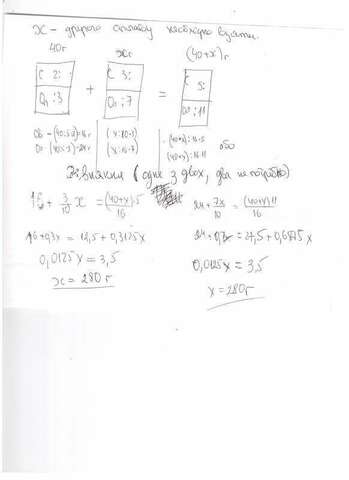 x - другого сплаву необхідно взяти.
40г xг (40+x)г
C 2: C 3: C 5:
Ол :3 + Ол :7 = Ол :11
(40:5·2)=16г (x:10·3) (40+x):16·5
(40:5·3)=24г (x:10·7) (40+x):16·11 або
Рівняння (одне з двох, два не потрібно)
16 + 3/10 x = (40+x)·5/16 24 + 7x/10 = (40+x)·11/16
16+0,3x = 12,5 + 0,3125x 24+0,7x = 27,5 + 0,6875x
0,0125x = 3,5 0,0125x = 3,5
x = 280г x = 280г